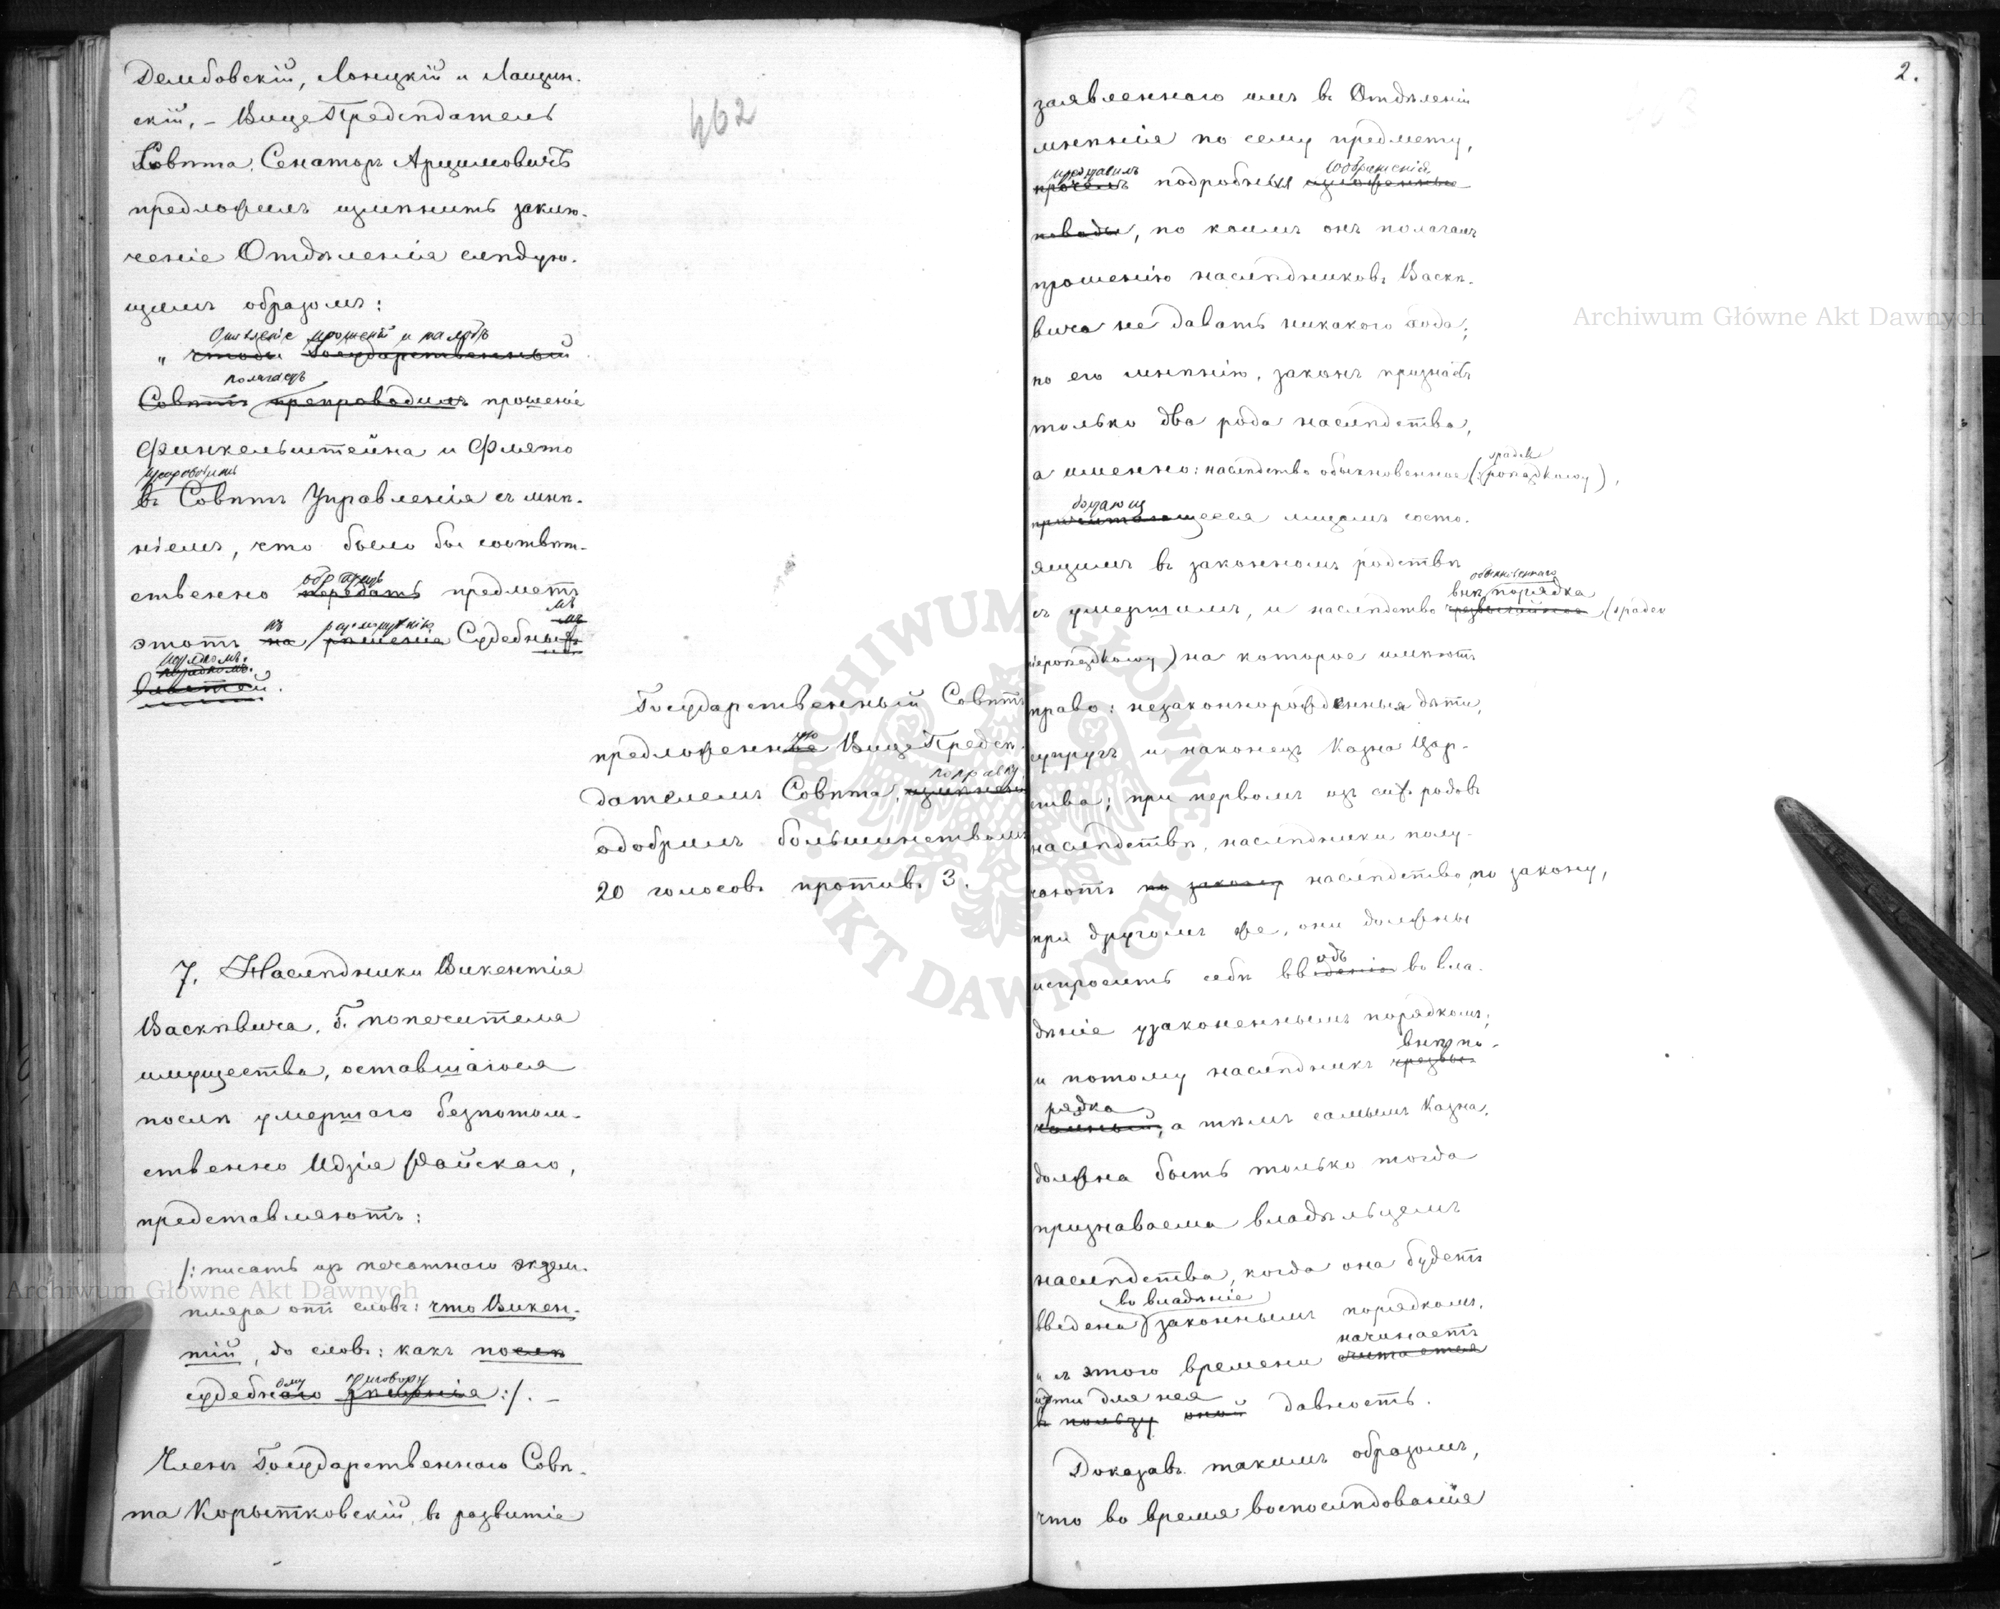 Дембовскій, Лонцкій и Лащин-
скій, – ВицеПредсѣдатель
Совѣта, Сенаторъ Арцимовичъ
предложилъ измѣнить заклю-
ченіе Отдѣленія слѣдую-
щимъ образомъ:
Отдѣленіе прошеній и жалобъ
„ чтобы Государственный
полагаетъ
Совѣтъ препроводилъ прошеніе
Финкельштейна и Флято
препроводить
въ Совѣтъ Управленія съ мнѣ-
ніемъ, что было бы соотвѣт-
ственно передать предметъ
этотъ на рѣшеніе Судебныхъ
къ разсмотрѣнію
порядкомъ.
властей.
462
Государственный Совѣтъ
предложенную ВицеПредсѣ-
дателемъ Совѣта, поправку
одобрилъ большинствомъ
20 голосовъ противъ 3.
7. Наслѣдники Викентія
Васкѣвича, б. попечителя
имущества, оставшагося
послѣ умершаго безпотом-
ственно Идзія Файскаго,
представляютъ:
/: писать изъ печатнаго экзем-
пляра отъ словъ: что Викен-
тій, до словъ: какъ послѣ
ому приговору
судебнаго рѣшенія :/. –
Членъ Государственнаго Совѣ-
та Корытковскій, въ развитіе
2.
заявленнаго имъ въ Отдѣленіи
мнѣнія по сему предмету,
представилъ соображенія,
прочелъ подробныя изложенные
поводы, по коимъ онъ полагалъ
прошенію наслѣдниковъ Васкѣ-
вича не давать никакого хода;
по его мнѣнію, законъ признаетъ
только два рода наслѣдства,
а именно: наслѣдство обыкновенное (: spadek porządkowy),
причитающееся лицамъ состо-
ящимъ въ законномъ родствѣ
обыкновеннаго
внѣ порядка
съ умершимъ, и наслѣдство чрезвычайное (spadek
nieporządkowy) на которое имѣютъ
право: незаконнорожденныя дѣти,
супругъ и наконецъ Казна Цар-
ства; при первомъ изъ сихъ родовъ
наслѣдства, наслѣдники полу-
чаютъ по закону наслѣдство по закону,
при другомъ же, они должны
испросить себѣ вводъ во вла-
дѣніе узаконеннымъ порядкомъ;
внѣ по-
и потому наслѣдникъ чрезвы-
рядка
чайный, а тѣмъ самымъ Казна,
должна быть только тогда
признаваема владѣльцемъ
наслѣдства, когда она будетъ
во владѣніе
введена законнымъ порядкомъ,
начинаетъ
и съ этого времени считается
идти для нея
въ пользу оной давность.
Доказавъ такимъ образомъ,
что во время воспослѣдованія
Archiwum Główne Akt Dawnych
Archiwum Główne Akt Dawnych
ARCHIWUM GŁÓWNE AKT DAWNYCH